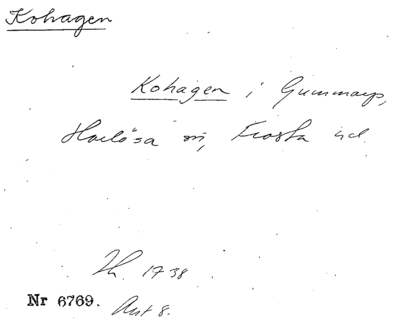 Kohagen
Kohagen i Gummarp,
Harlösa sn, Frosta hd.
Th. 1738
Nr 6769. Avt 8.